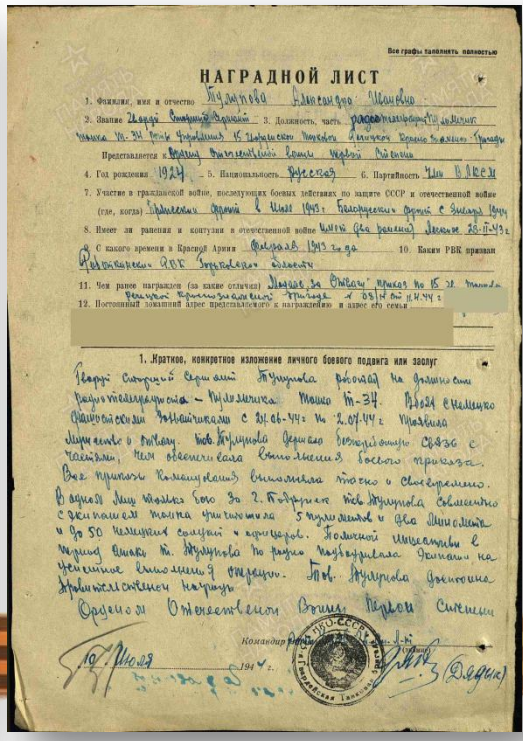 Все графы заполнять полностью
НАГРАДНОЙ ЛИСТ
1. Фамилия, имя и отчество Тулупова Александра Ивановна
2. Звание Гвардии Старший Сержант 3. Должность, часть радиотелеграфист пулеметчик
танка Т-34 роты управления 15 Гвардейской Танковой Речицкой Краснознаменной Бригады
Представляется к Ордену Отечественной войны первой Степени
4. Год рождения 1924 5. Национальность Русская 6. Партийность Член ВЛКСМ
7. Участие в гражданской войне, последующих боевых действиях по защите СССР и отечественной войне
(где, когда) Брянский фронт в Июле 1943г. Белорусский фронт с Января 1944
8. Имеет ли ранения и контузии в отечественной войне имеет два ранения Легкое 28-II-43г
9. С какого времени в Красной Армии Февраля 1943 года 10. Каким РВК призван
РВК Горьковской области
11. Чем ранее награжден (за какие отличия) Медаль "за Отвагу" приказ по 15 гв. танково
речицкой Краснознаменной бригаде № 03/Н от 11.4.44 г
12. Постоянный домашний адрес представляемого к награждению и адрес его семьи
1. Краткое, конкретное изложение личного боевого подвига или заслуг
Гвардии Старший Сержант Тулупова работая на должности
радиотелеграфиста - пулеметчика танка Т-34. В боях с немецко
фашистскими захватчиками с 24.06-44г по 2.07.44г проявила
мужество и отвагу. тов. Тулупова держала бесперебойную связь с
частями, чем обеспечивала выполнения боевого приказа.
Все приказы командования выполняла точно и своевременно.
В одном лиш только бою за г. тов. Тулупова совместно
с экипажем танка уничтожила 5 пулеметов и два миномета
и до 50 немецких солдат и офицеров.
период атаки т. Тулупова по радио экипажи на
успешное выполнения операции. Тов. Тулупова достойна
Правительственой награды
Орденом Отечественой Войны Первой Степени
Командир
июля 1944 г.
НКО-СССР
Гвардейская Танковая
(Дядык)